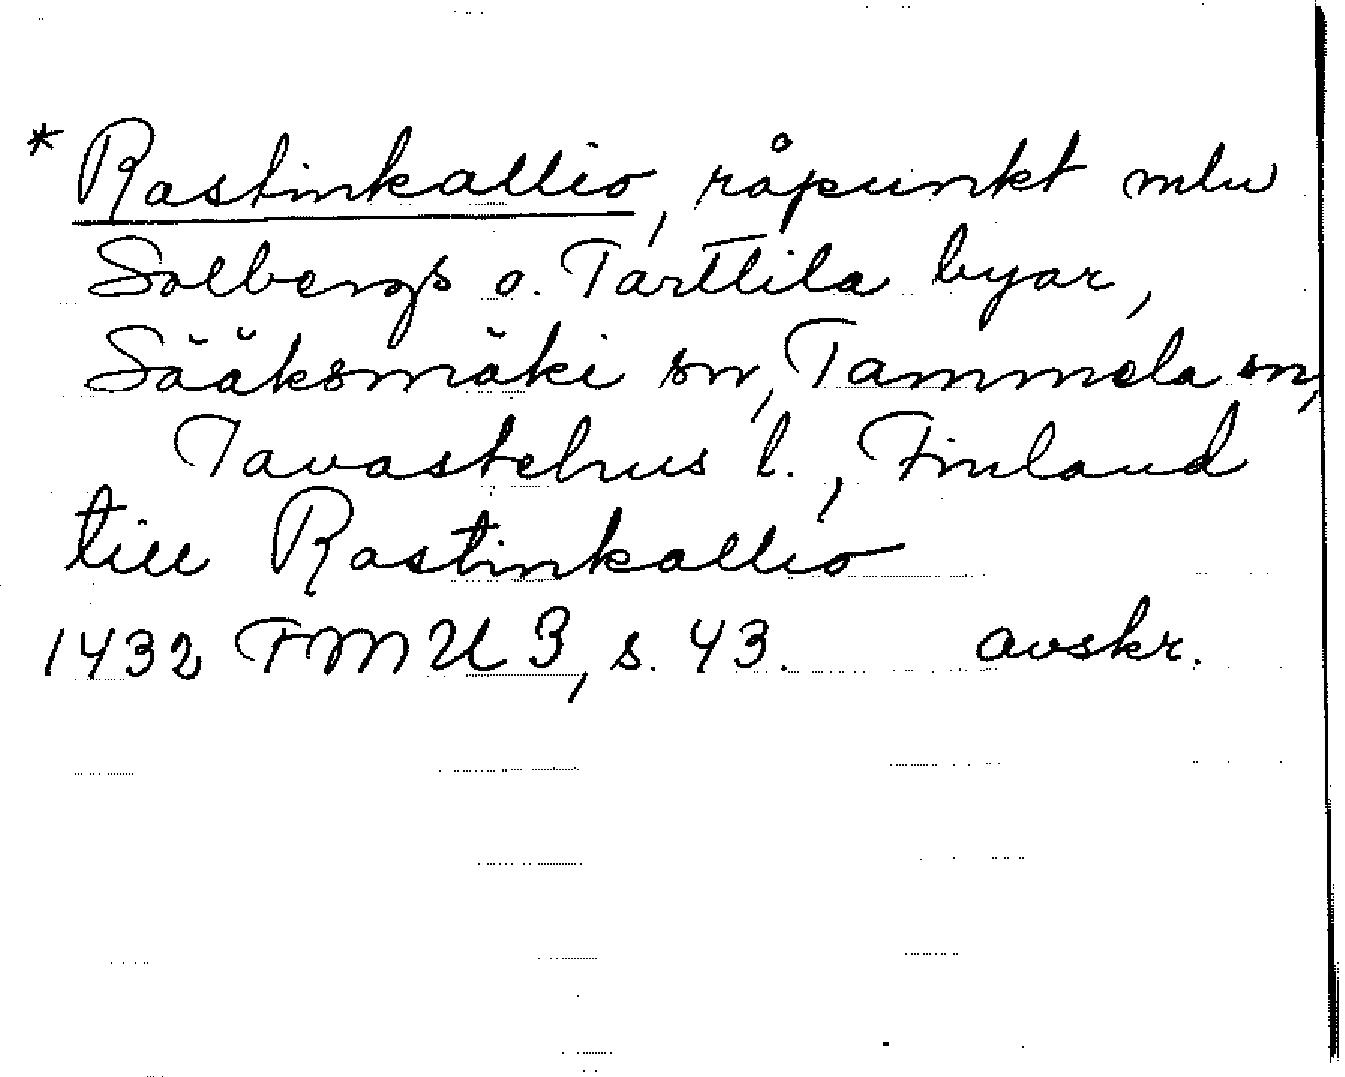 * Rastinkallio, råpunkt mlu
Solbergs o. Tarttila byar,
Sääksmäki sn, Tammela sn,
Tavastehus l., Finland
till Rastinkallio
1432 FMU 3, s. 43. avskr.